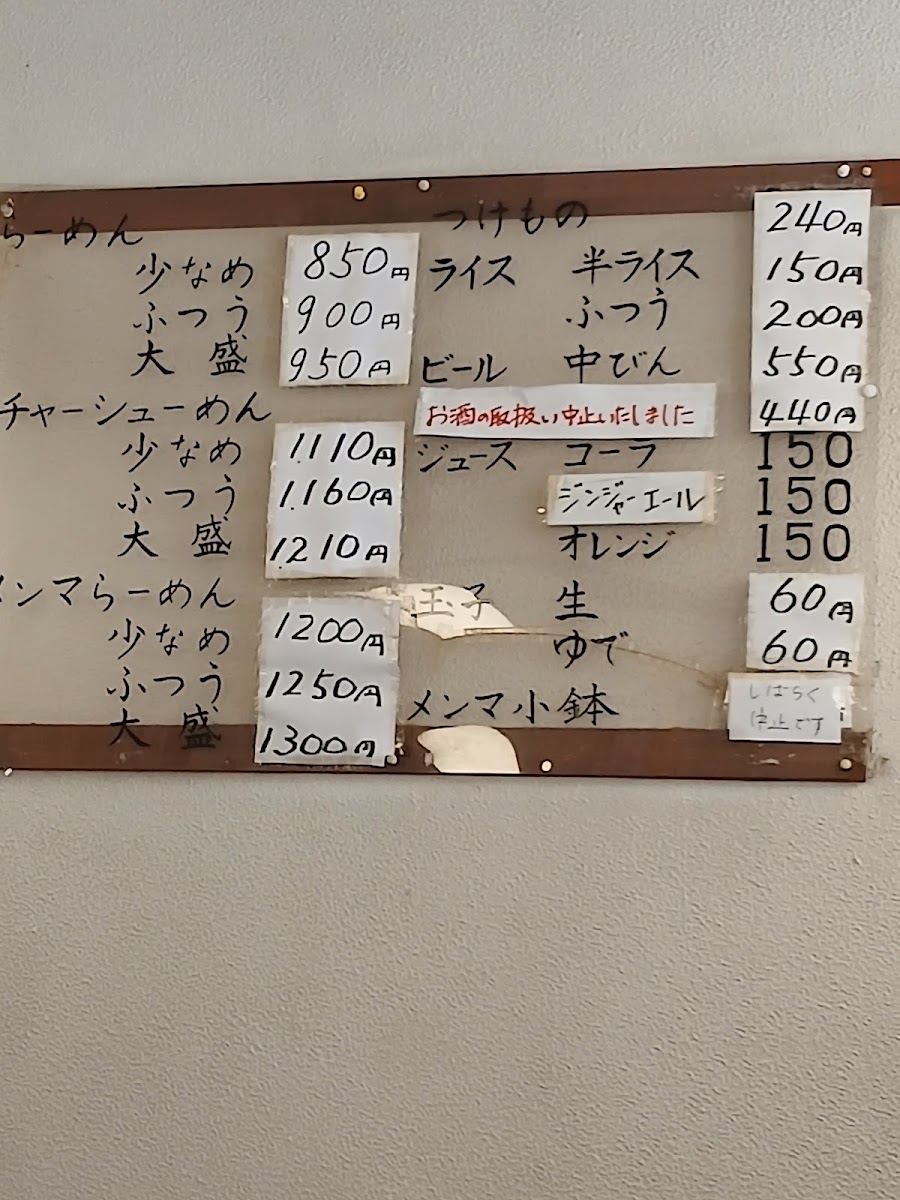 らーめん
少なめ 850円
ふつう 900円
大盛 950円
チャーシューめん
少なめ 1.110円
ふつう 1.160円
大盛 1.210円
メンマらーめん
少なめ 1200円
ふつう 1250円
大盛 1300円
つけもの 240円
ライス 半ライス 150円
ふつう 200円
ビール 中びん 550円
お酒の取扱い中止いたしました 440円
ジュース コーラ 150
ジンジャーエール 150
オレンジ 150
玉子 生 60円
ゆで 60円
メンマ小鉢 しばらく
中止です